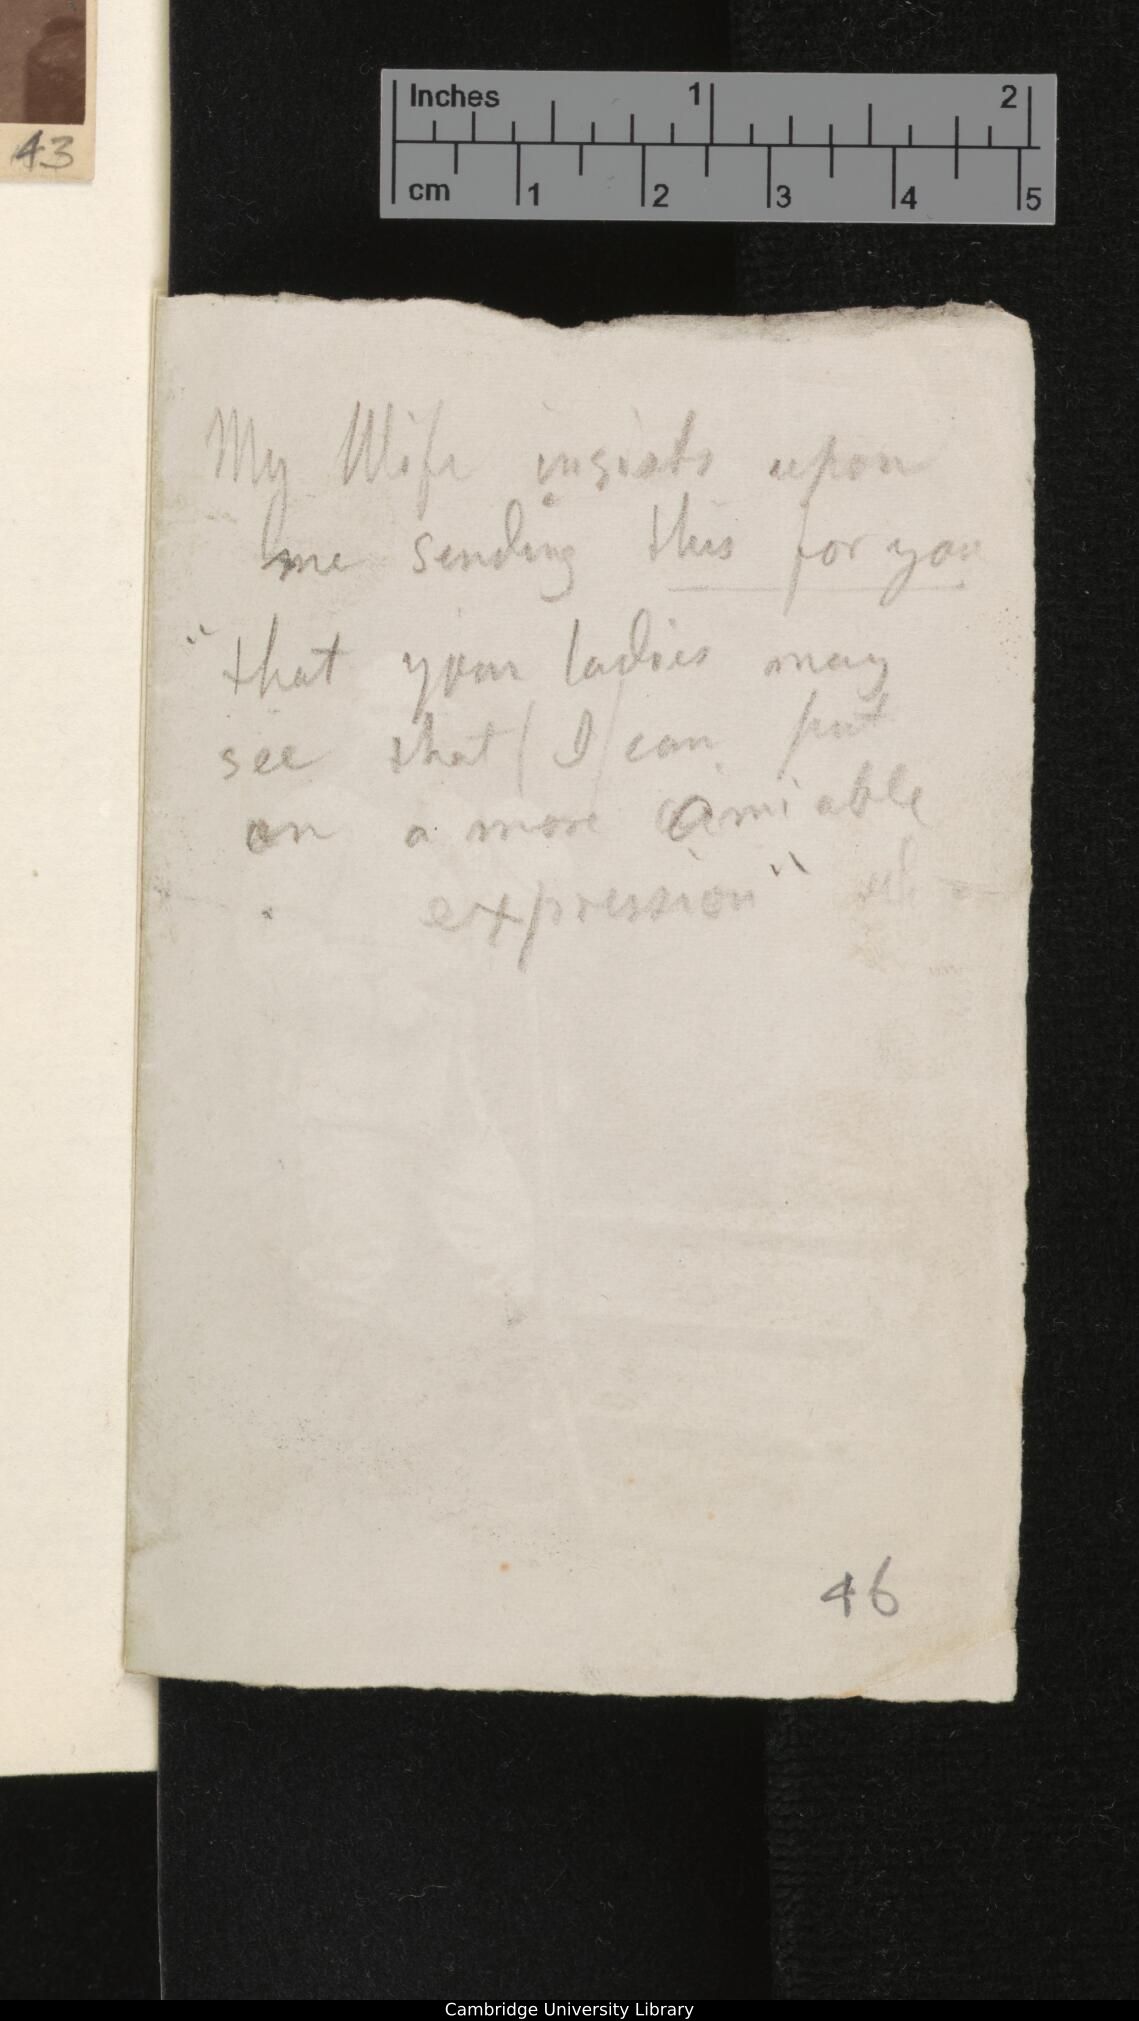 Inches 1 2
cm 1 2 3 4 5
43
My Wife insists upon
me sending this for you
"that your ladies may
see that (I) can put
on a more amiable
expression"
46
Cambridge University Library